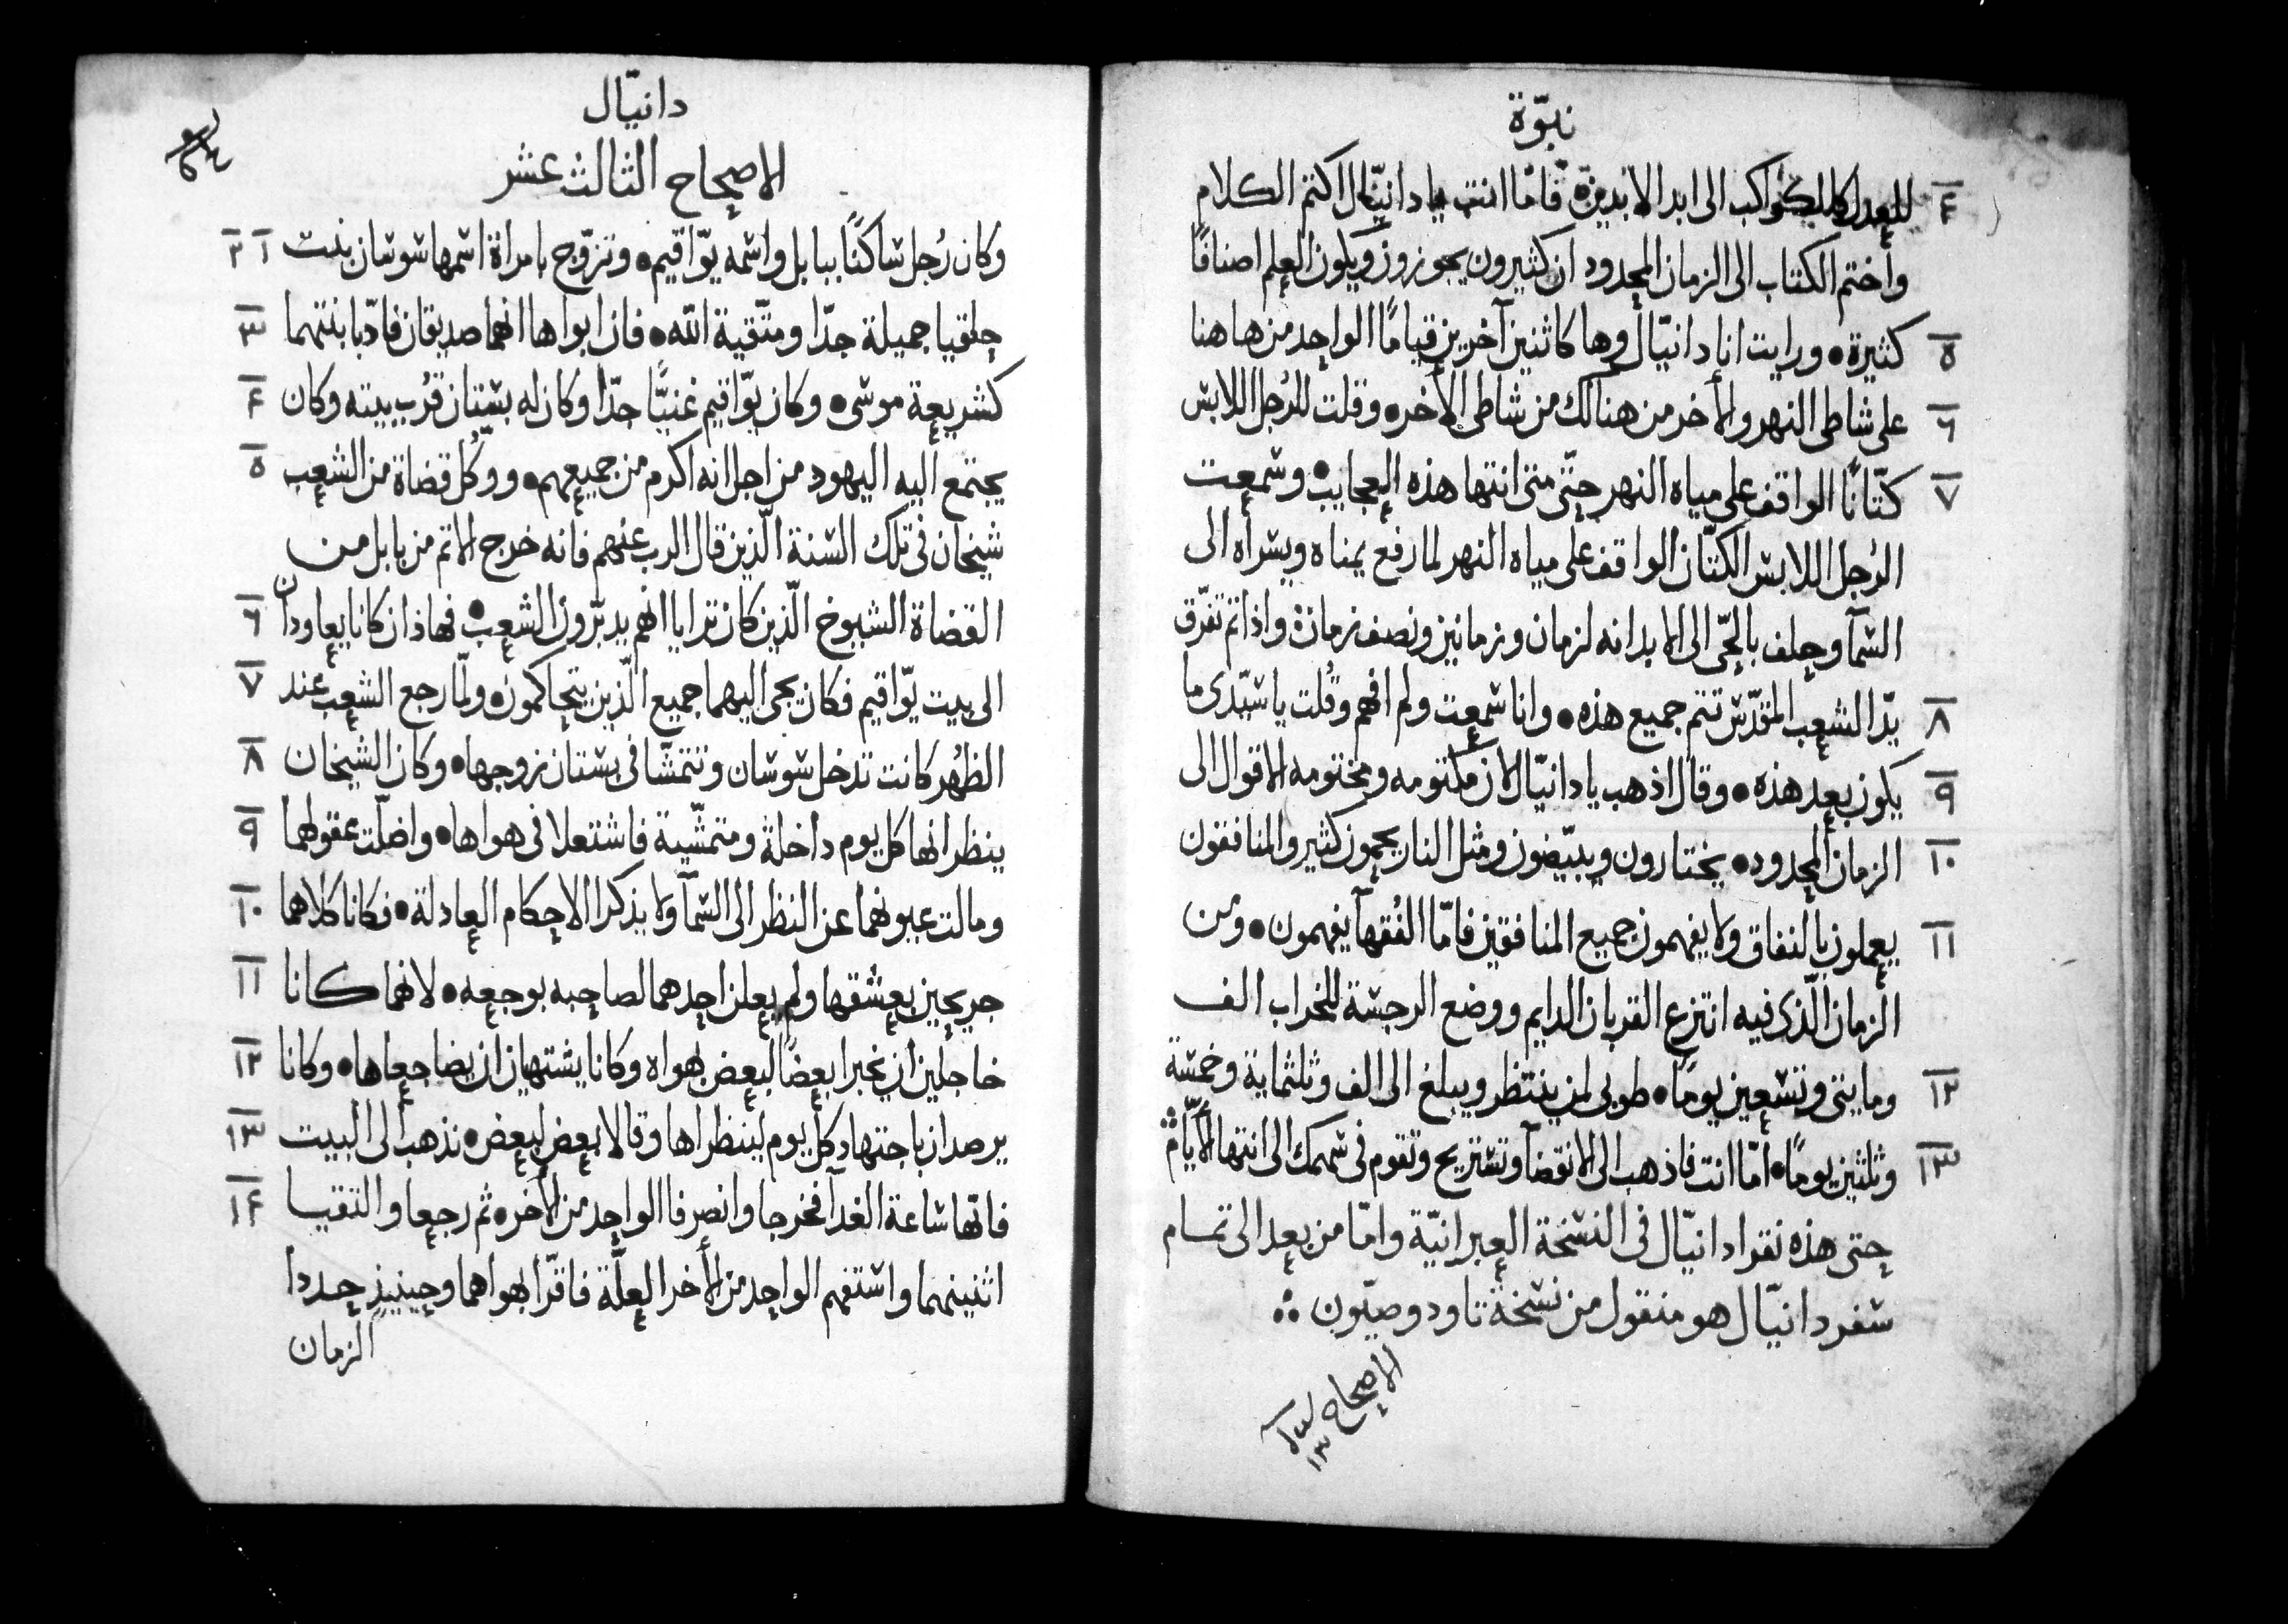 نبوّة
٤ للعدل كالكواكب الى ابد الابدين• فامّا انت يا دانيّال اكتم الكلام
واختم الكتاب الى الزمان المحدود ان كثيرون يجوزون ويكون العلم اصنافًا
٥ كثيرة• ورايت انا دانيّال وها كاثنين آخرين قيامًا الواحد من هاهنا
٦ على شاطى النهر والأخر من هنالك من شاطى الأخر• وقلت للرُجل اللابس
٧ كتّانًا الواقف على مياه النهر حتّى متى انتها هذه العجايب• وسمعت
الرُجل اللابس الكتّان الواقف على مياه النهر لما رفع يمناه ويسراه الى
السمآ وحلف بالحّى الى الابد انه لزمان وزمانين ونصف زمان• واذا تم تفرّق
٨ يدّ الشعب المقدّس تتم جميع هذه• وانا سمعت ولم افهم وقُلت يا سيّدى ما
٩ يكون بعد هذه• وقال اذهب يا دانيّال لان مكتومه ومختومه الاقوال الى
١٠ الزمان المحدود• يختارون ويبيّضون ومثل النار يحمون كثير والمنافقون
١١ يعملون بالنفاق ولا يفهمون جميع المنافقين فامّا الفُقهآ يفهمون• ومن
الزمان الّذى فيه انتزع القربان الدايم ووضع الرجسة للخراب الف
١٢ ومايتى وتسعين يومًا• طوبى لمن ينتظر ويبلغ الى الف وثلثماية وخمسة
١٣ وثلثين يومًا• امّا انت فاذهب الى الانقضآ وتستريح وتقوم فى سهمك الى انتها الأيّام
حتى هذه نقرا دانيّال فى النسخة العبرانيّة وامّا من بعد الى تمام
سفر دانيّال هو منقول من نسخة تاودوصيّون
الاصحاح
١٣
دانيّال
الاصحاح الثالث عشر
وكان رُجل ساكنًا ببابل واسمه يوّاقيم• وتزوّج بامراة اسمها سوسان بنت ١ ٢
حلقيا جميلة جدّا ومتّقية الله• فان ابواها انهما صديقان فادّبا بنتهما ٣
كشريعة موسى• وكان يوّاقيم غنيًّا جدّا وكان له بستان قرُب بيته وكان ٤
يجتمع اليه اليهود من اجل انه اكرم من جميعهم• ووكُل قضاة من الشعب ٥
شيخان فى تلك السنة الّذين قال الرب عنهم فانه خرج الاثم من بابل من
القضاة الشيوخ الّذين كان ترايا انهم يدبّرون الشعب• فهاذان كانا يعاودان ٦
الى بيت يوّاقيم فكان يجى اليهما جميع الّذين يتحاكمون• ولمّا رجع الشعب عند ٧
الظهُر كانت تدخل سوسان وتتمشّا فى بستان زوجها• وكان الشيخان ٨
ينظرانها كل يوم داخلة ومتمشّية فاشتعلا فى هواها• واضلّت عقولهما ٩
ومالت عيونهما عن النظر الى السمآ ولا يذكرا الاحكام العادلة• فكانا كلاهما ١٠
جريحين بعشقها ولم يعلن احدهما لصاحبه بوجعه• لانهما كانا ١١
خاجلين ان يخبرا بعضًا لبعض بهواه وكانا يشتهيان ان يضاجعاها• وكانا ١٢
يرصدان باجتهاد كل يوم لينظراها وقالا بعض لبعض• نذهب الى البيت ١٣
فانّها ساعة الغدآ فخرجا وانصرفا الواحد من الأخر• ثم رجعا والتقيا ١٤
اثنينهما واستفهم الواحد من الأخر العلّة فاقرّا بهواهما وحينيذٍ حددا
الزمان